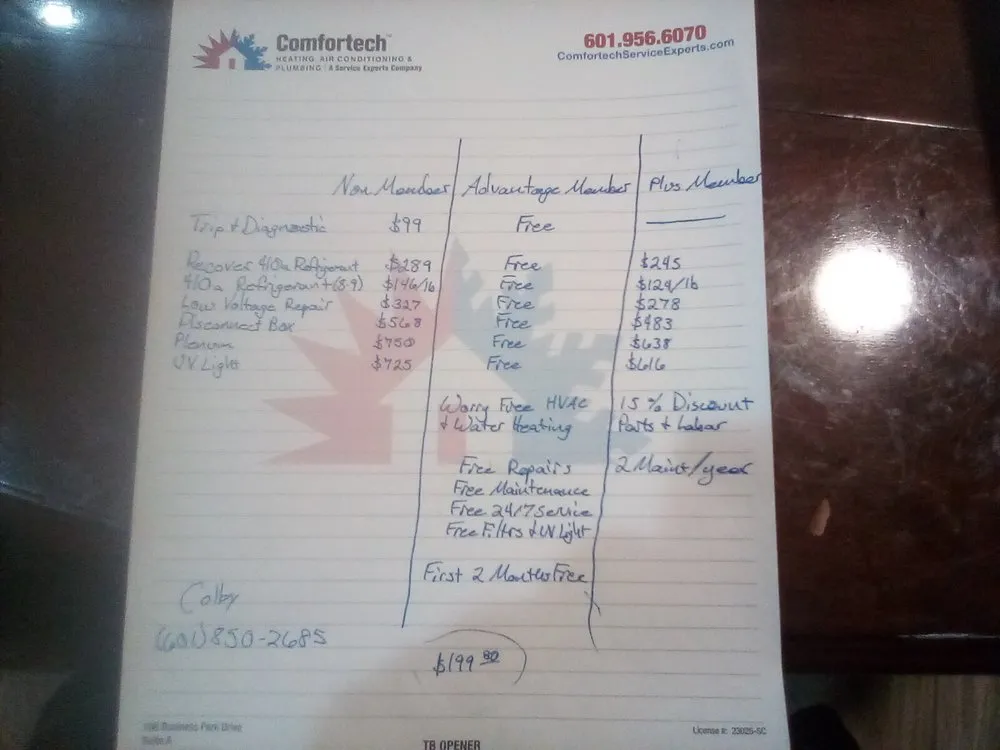 Comfortech™
HEATING, AIR CONDITIONING &
PLUMBING | A Service Experts Company
601.956.6070
ComfortechServiceExperts.com
Non Member Advantage Member Plus Member
Trip & Diagnostic $99 Free
Recover 410a Refrigerant $289 Free $245
410a Refrigerant (8-9) $146/lb Free $124/lb
Low Voltage Repair $327 Free $278
Disconnect Box $568 Free $483
Plenum $750 Free $638
UV Light $725 Free $616
Worry Free HVAC 15% Discount
& Water Heating Parts & Labor
Free Repairs 2 Maint/year
Free Maintenance
Free 24/7 Service
Free Filtrs & UV Light
First 2 Months Free
Colby
(601) 850-2685
$199
Business Park Drive
Suite A
TB OPENER
License #: 23025-SC